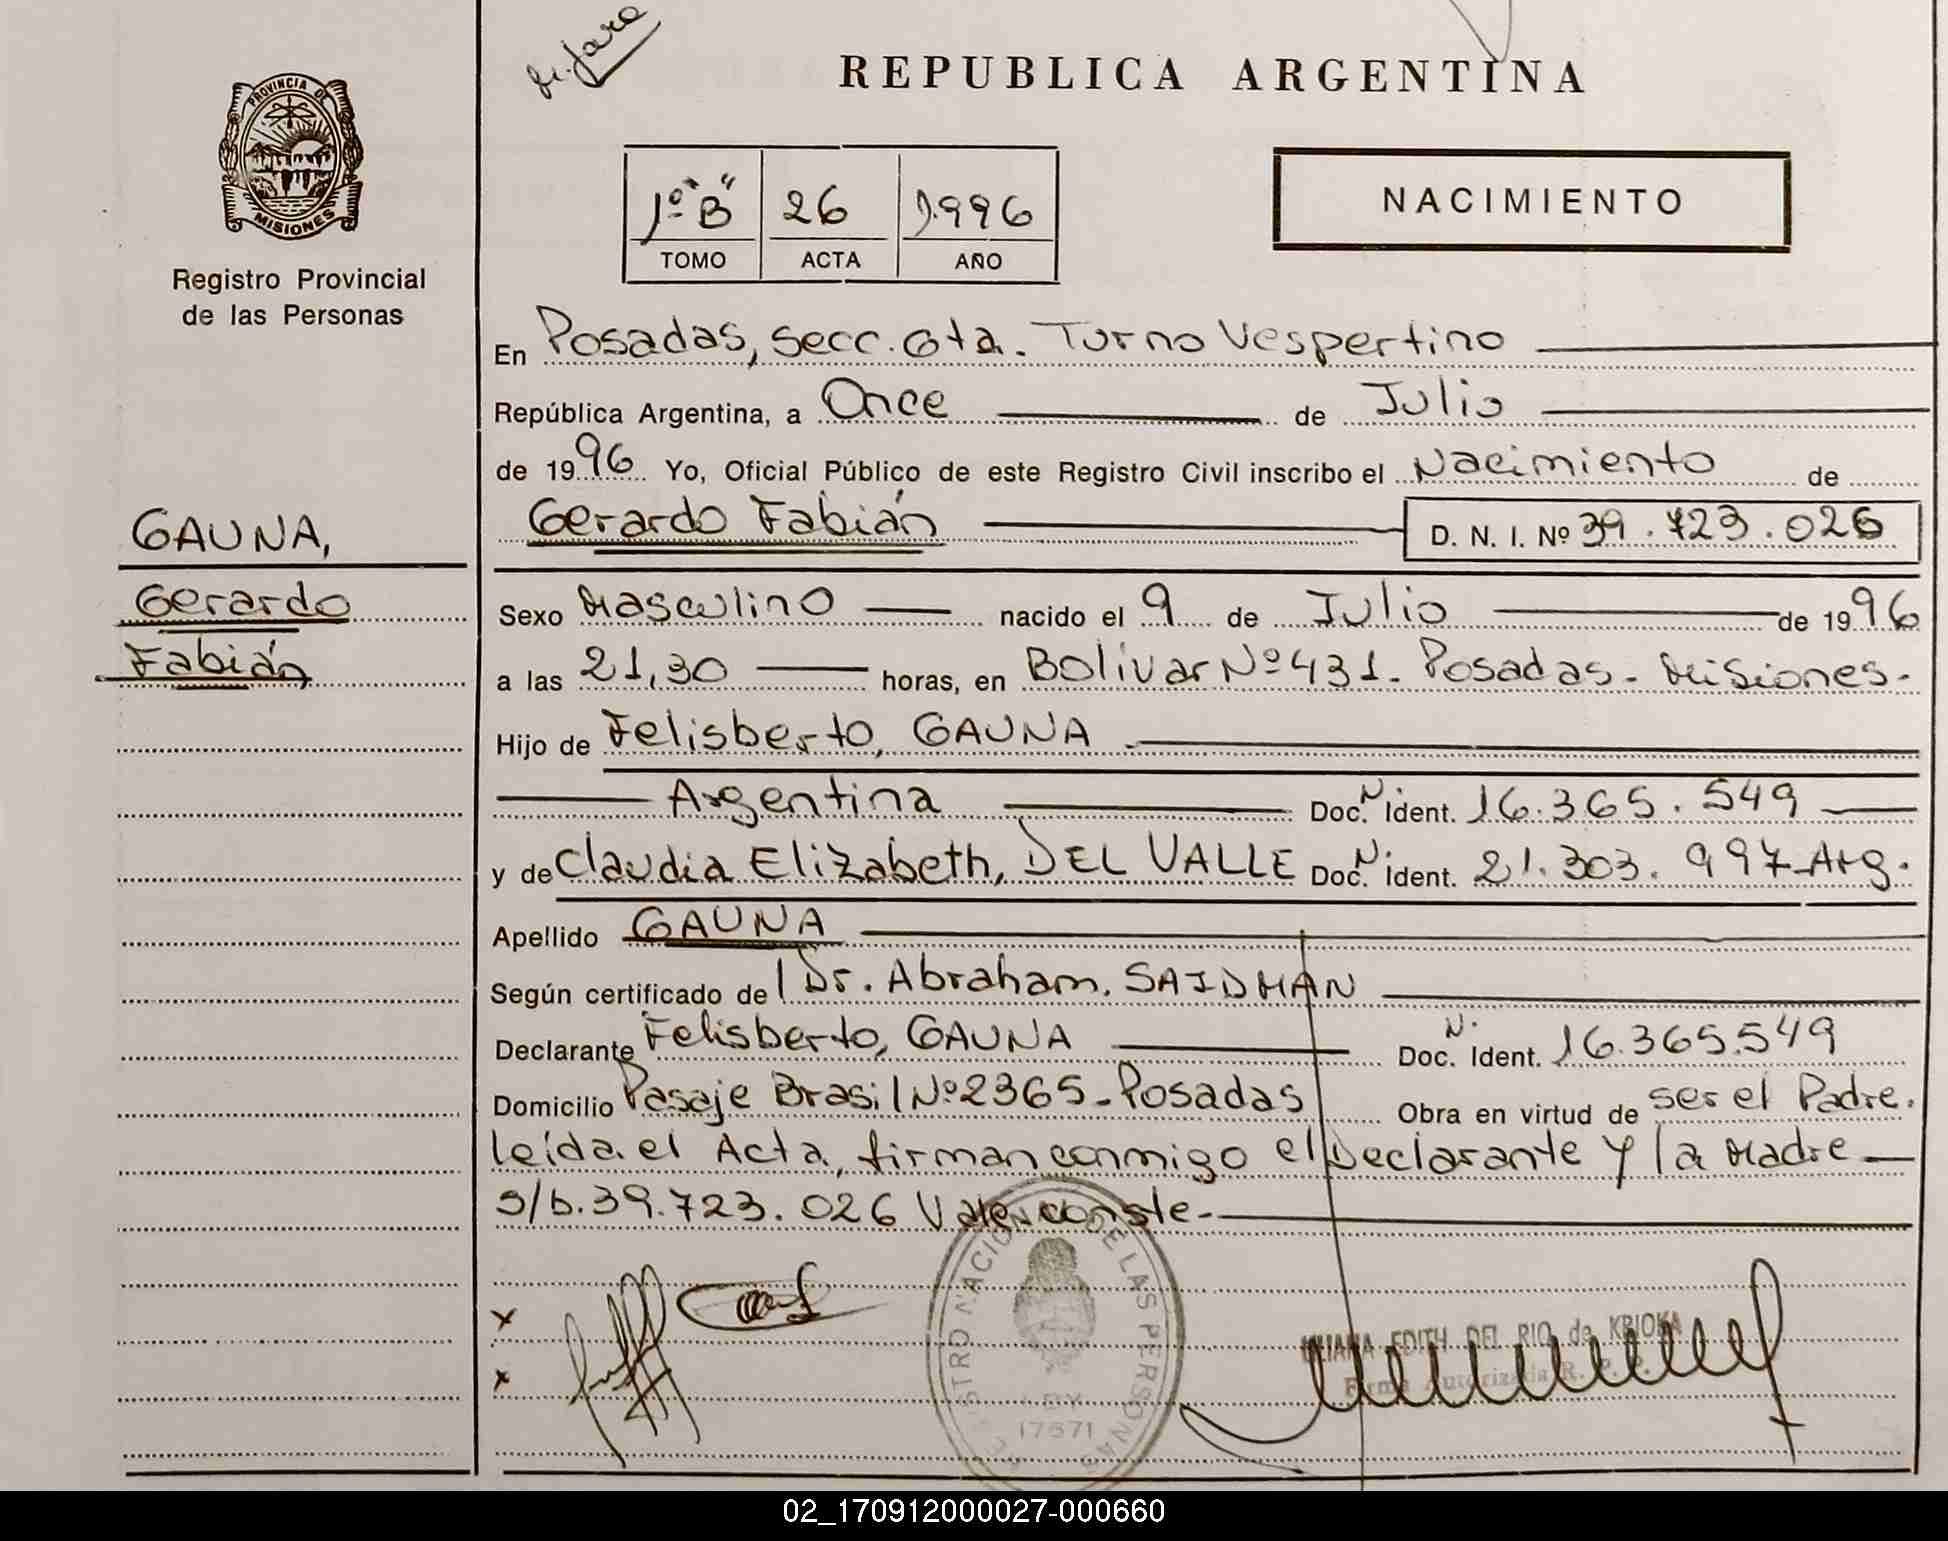 REPUBLICA ARGENTINA
PROVINCIA DE
MISIONES
Registro Provincial
de las Personas
1º "B" 26 1.996
TOMO ACTA AÑO
NACIMIENTO
En Posadas, Secc. 6ta. Turno Vespertino
República Argentina, a Once de Julio
de 1996 Yo, Oficial Público de este Registro Civil inscribo el Nacimiento de
Gerardo Fabián D. N. I. Nº 39.723.026
GAUNA,
Gerardo
Fabián
Sexo Masculino nacido el 9 de Julio de 1996
a las 21,30 horas, en Bolívar Nº 431. Posadas - Misiones.
Hijo de Felisberto, GAUNA
Argentina Doc. N. Ident. 16.365.549
y de Claudia Elizabeth, DEL VALLE Doc. N. Ident. 21.303.997 Arg.
Apellido GAUNA
Según certificado del Dr. Abraham, SAIDMAN
Declarante Felisberto, GAUNA Doc. N. Ident. 16.365.549
Domicilio Pasaje Brasil Nº 2365 - Posadas Obra en virtud de ser el Padre.
leída el Acta, firman conmigo el Declarante y la Madre
s/b. 39.723.026 Vale. conste.-
DE LAS PERSONAS
LEY
17671
LILIANA EDITH DEL RIO de KRIOKA
Firma Autorizada R.
02_170912000027-000660